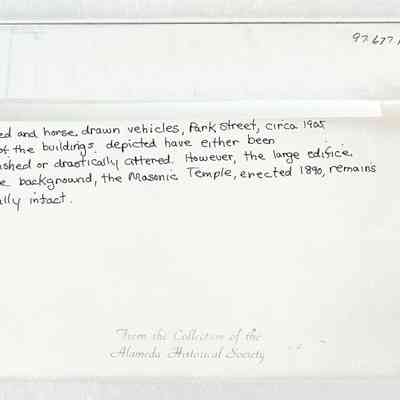 97.677.
ed and horse drawn vehicles, Park Street, circa 1905
of the buildings depicted have either been
ished or drastically altered. However, the large edifice
e background, the Masonic Temple, erected 1890, remains
ally intact.
From the Collection of the
Alameda Historical Society